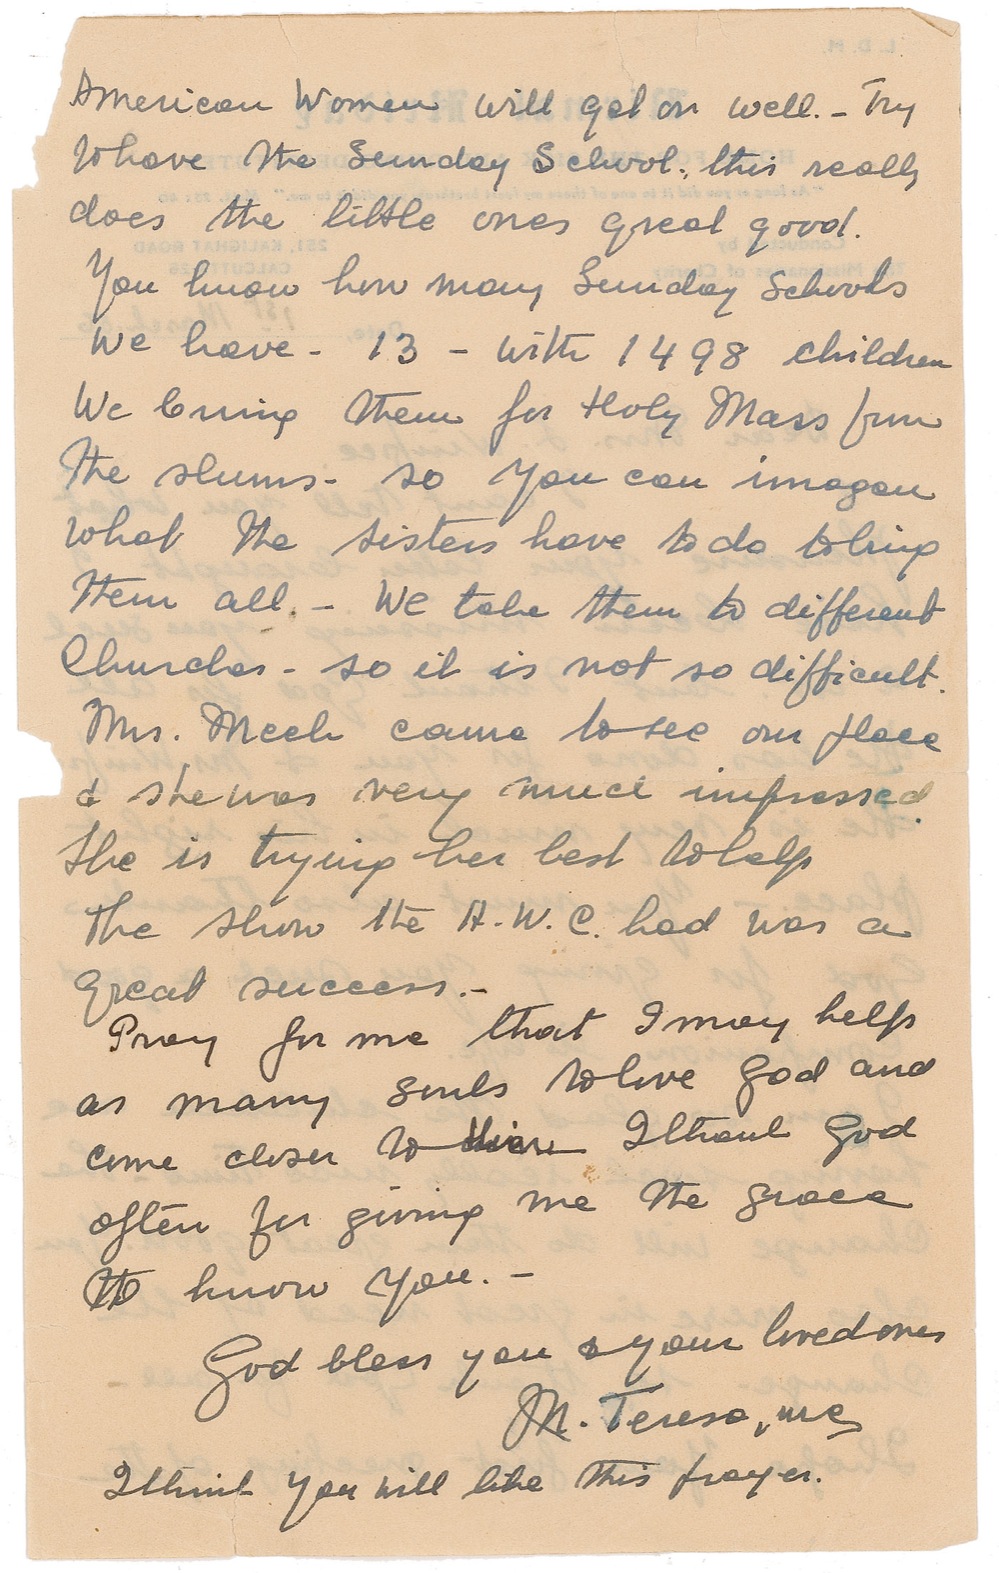 American Women will get on well. - Try
to have the Sunday School. this really
does the little ones great good.
You know how many Sunday Schools
We have - 13 - with 1498 children
We bring them for Holy Mass from
the slums - so you can imagan
what the sisters have to do to bring
them all. - We take them to different
Churches - so it is not so difficult.
Mrs. Meek came to see our place
& she was very much impressed.
She is trying her best to help
The show the A.W.C. had was a
great success. -
Pray for me that I may help
as many souls to love God and
come closer to I thank God
often for giving me the grace
to know you. -
God bless you & your loved ones
M. Teresa, mc
I think you will like this prayer.